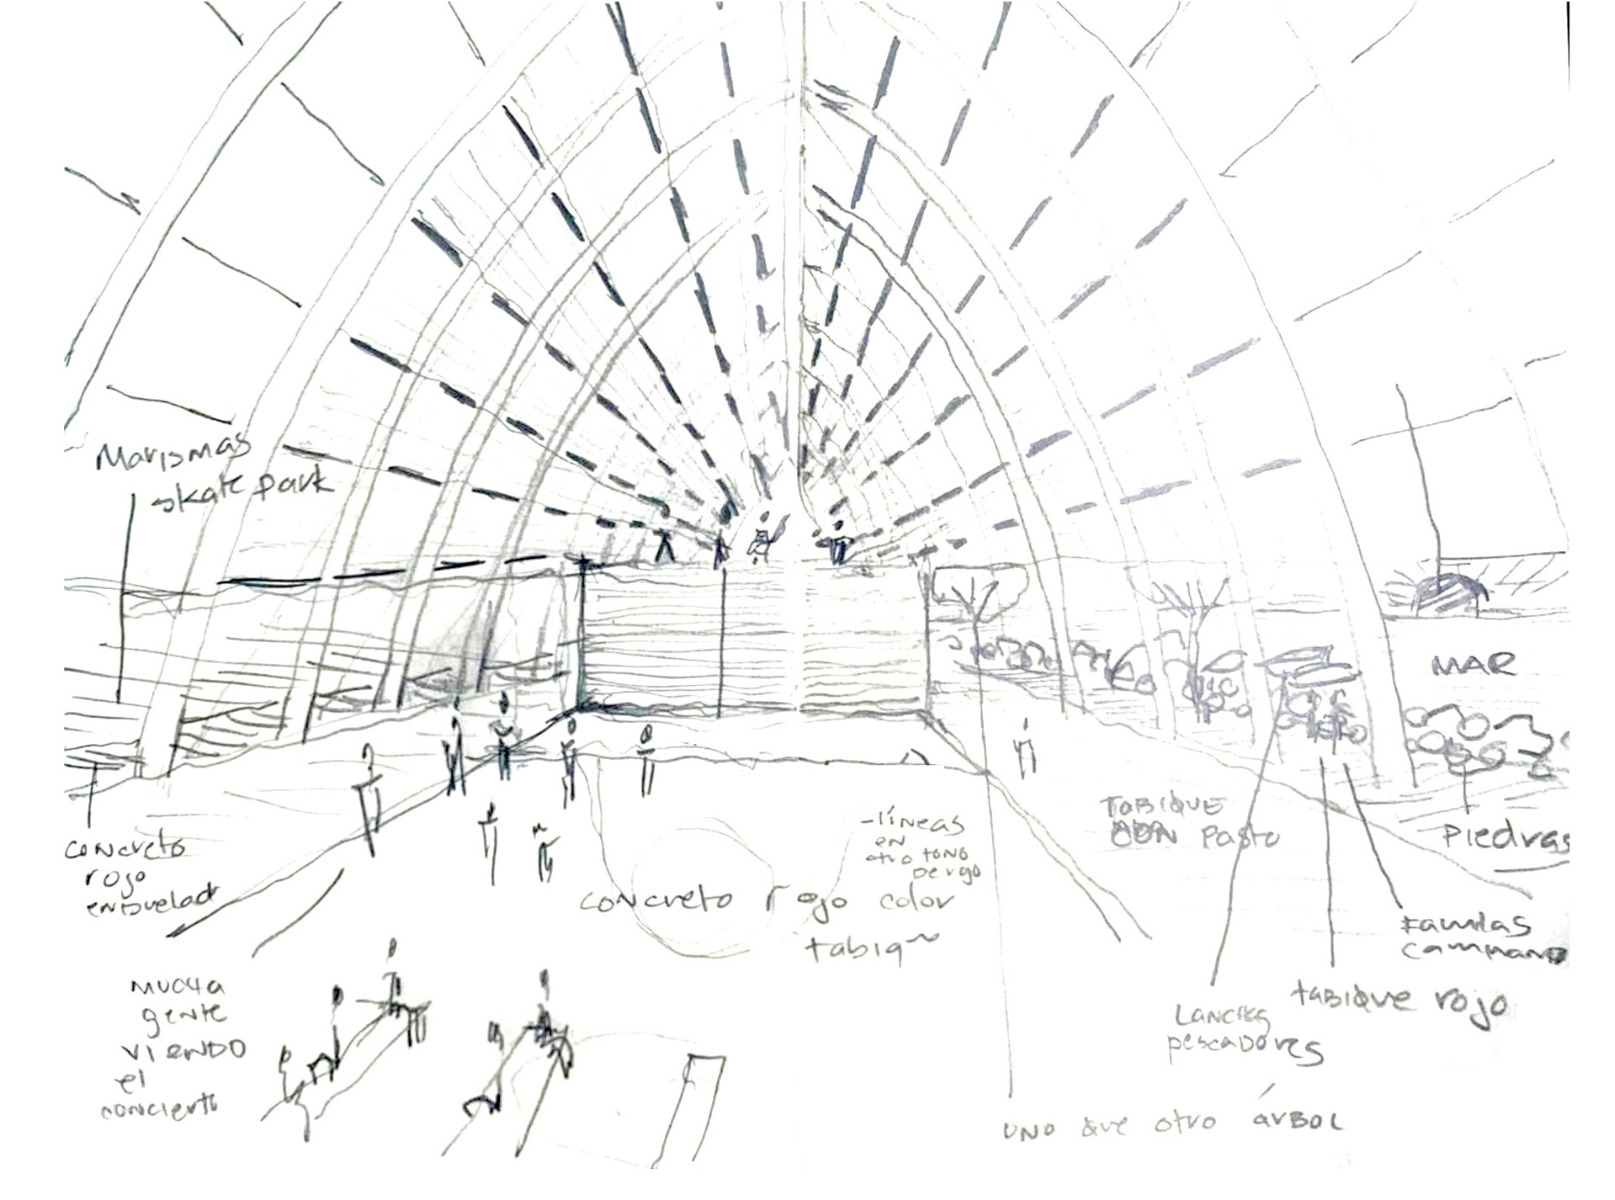 Marismas
skate park
MAR
Piedras
Tabique
con pasto
concreto
rojo
-líneas
en
otro tono
concreto rojo color
Familias
tabique rojo
Lanchas
pescadores
mucha
gente
viendo
el
concierto
uno que otro árbol